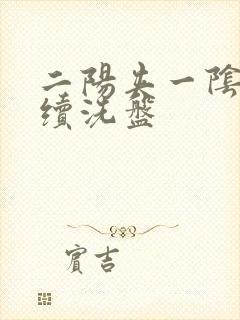 二陽夹一陰
續洗盤
賓吉